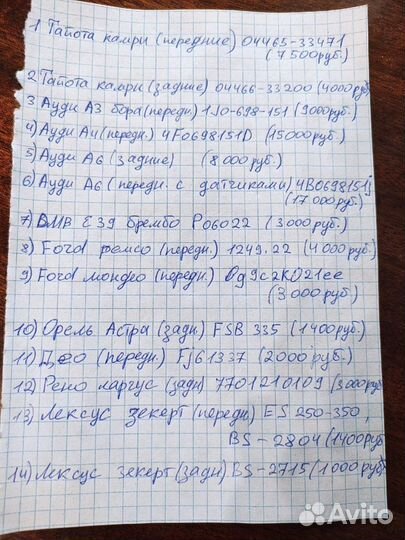 1 Тайота камри (передние) 04465-33471
(7500руб.)
2 Тайота камри (задние) 04466-33200 (4000руб.)
3 Ауди А3 бора (передн) 1J0-698-151 (9000руб.)
4) Ауди А4 (передн.) 4F0698151D (15000руб.)
5) Ауди А6 (задние) (8000руб.)
6) Ауди А6 (передн. с датчиками) 4B0698151j
(17 000руб.)
7) БМВ Е39 брембо P06022 (3000руб.)
8) Ford ремсо (передн.) 1249.22 (4000руб.)
9) Ford мондео (передн.) Dg9c2K021ee
(3000руб.)
10) Орель Астра (задн.) FSB 335 (1400руб.)
11) Део (передн.) Fj61337 (2000руб.)
12) Рено ларгус (задн) 7701210109 (3000руб.
13) Лексус зекерт (передн.) ES 250-350,
BS-2804 (1400руб
14) Лексус зекерт (задн) BS-2715 (1000руб
Avito